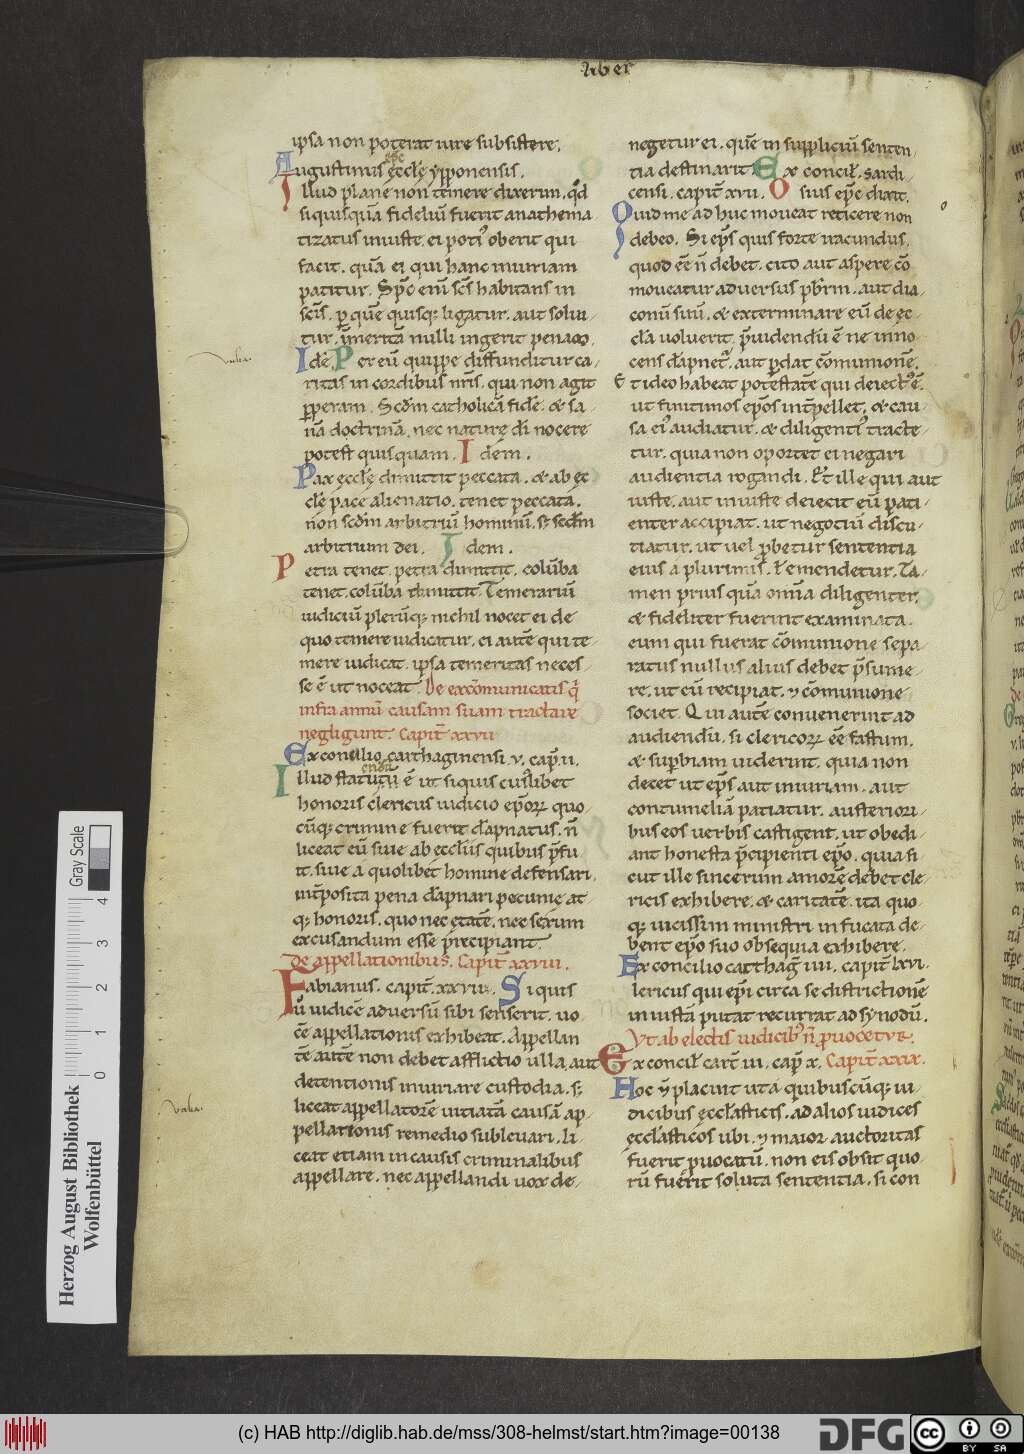 Liber
ipsa non poterat iure subsistere.
Augustinus epc̄ ęccl̄ę ypponensis.
Illud plane non temere dixerim. qd̄
si quisquā fideliū fuerit anathema
tizatus iniuste. ei poti᾽ oberit qui
facit. quā ei qui hanc iniuriam
patitur. Sp̄c eni᷑ sc̄s habitans in
sc̄is. p quē quisq; ligatur. aut solui
tur. īmeritā nulli ingerit penam.
Idē. Per eū quippe diffunditur ca-
ritas in cordibus nr̄is. qui non agit
pperam. Scdm catholicā fidē. & sa-
nā doctrinā. nec naturę dī nocere
potest quisquam. Idem.
Pax ęccl̄ę dimittit peccata. & ab ęc
cl̄ę pace alienatio. tenet peccata.
non scdm arbitriū hominū. sꝫ scdm
arbitrium dei. Idem.
Petra tenet. petra dimittit. colūba
tenet. colūba dimittit. Temerariū
iudiciū plerūq; nichil nocet ei de
quo temere iudicatur. ei autē qui te-
mere iudicat. ipsa temeritas neces-
se ē ut noceat. De excōmunicatis q̄
infra annū causam suam tractare
negligunt. Capit̄ xxvii
Ex concilio carthaginensi. v. cap̄. ii.
Illud statutū ē ut siquis cuiuslibet
honoris clericus iudicio ep̄oꝝ quo-
cūq; crimine fuerit dāpnatus. n̄
liceat eū siue ab ęccl̄iis quibus p̄fu
it. siue a quolibet homine defensari.
int̄posita pena dāpnari pecunię at
q; honoris. quo nec ętatē. nec sexum
excusandum esse p̄cipiant.
De appellationibus. Capit̄ xxviii.
Fabianus. capit̄. xxviii. Si quis
ū iudicē aduersū sibi senserit. uo
cē appellationis exhibeat. Appellan
tē autē non debet afflictio ulla. aut
detentionis iniuriare custodia. sꝫ
liceat appellatorē uitiatā causā ap-
pellationis remedio subleuari. li-
ceat etiam in causis criminalibus
appellare. nec appellandi uox de-
negetur ei. quē in suppliciū senten
tia destinarit. Ex concil̄. sardi-
censi. capit̄ xvii. Osius ep̄c dixit.
Quid me ad huc moueat reticere non
debeo. Si ep̄s quis forte iracundus.
quod eē n̄ debet. cito aut aspere cō
moueatur aduersus p̄brm. aut dia-
conū suū. & exterminare eū de ęc
cl̄a uoluerit. p̄uidendū ē ne inno-
cens dāpnet᾽. aut p̄dat cōmunionē.
Et ideo habeat potestatē qui deiect᾽ ē.
ut finitimos ep̄os int̄pellet. & cau-
sa ei᾽ audiatur. & diligenti᾽ tracte-
tur. quia non oportet ei negari
audientia rogandi. Et ille qui aut
iuste. aut iniuste deiecit eū pati-
enter accipiat. ut negotiū discu-
tiatur. ut uel p̄betur sententia
eius a plurimis. ł emendetur. Ta-
men prius quā omīa diligenter.
& fideliter fuerint examinata.
eum qui fuerat cōmunione sepa-
ratus nullus alius debet p̄sume-
re. ut eū recipiat. ⁊ cōmunione
societ. Qui autē conuenerint ad
audiendū. si clericoꝝ eē fastum.
& sup̄biam uiderint. quia non
decet ut ep̄s aut iniuriam. aut
contumeliā patiatur. austeriori
bus eos uerbis castigent. ut obedi-
ant honesta p̄cipienti ep̄o. quia si
cut ille sincerum amorē debet cle-
ricis exhibere. & caritatē. ita quo
q; uicissim ministri infucata de-
bent ep̄o suo obsequia exhibere.
Ex concilio carthaḡ iiii. capit̄ lxvi.
lericus qui ep̄i circa se districtionē
iniustā putat recurrat ad synodū.
Ut ab electis iudicib᾽ n̄ puocetur.
Ex concil̄ cart̄ iii. cap̄ x. Capit̄ xxix.
Hoc ū placuit ut a quibuscūq; iu
dicibus ęccl̄asticis. ad alios iudices
ęccl̄asticos ubi. ⁊ maior auctoritas
fuerit puocatū. non eis obsit quo-
rū fuerit soluta sententia. si con
Herzog August Bibliothek
Wolfenbüttel
Gray Scale
0 1 2 3 4
(c) HAB http://diglib.hab.de/mss/308-helmst/start.htm?image=00138
DFG
cc
BY SA